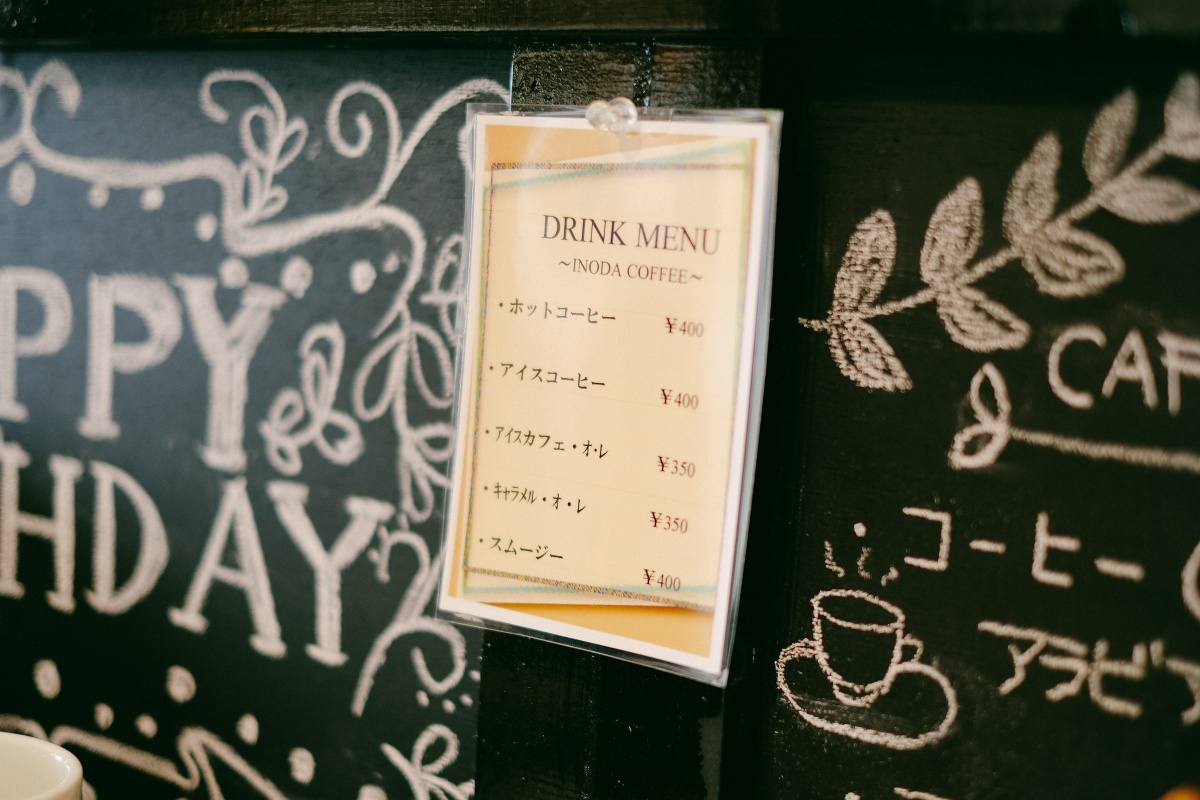 PPY
HDAY
DRINK MENU
~INODA COFFEE~
・ホットコーヒー ¥400
・アイスコーヒー ¥400
・アイスカフェ・オ・レ ¥350
・キャラメル・オ・レ ¥350
・スムージー ¥400
CAF
コーヒー
アラビア